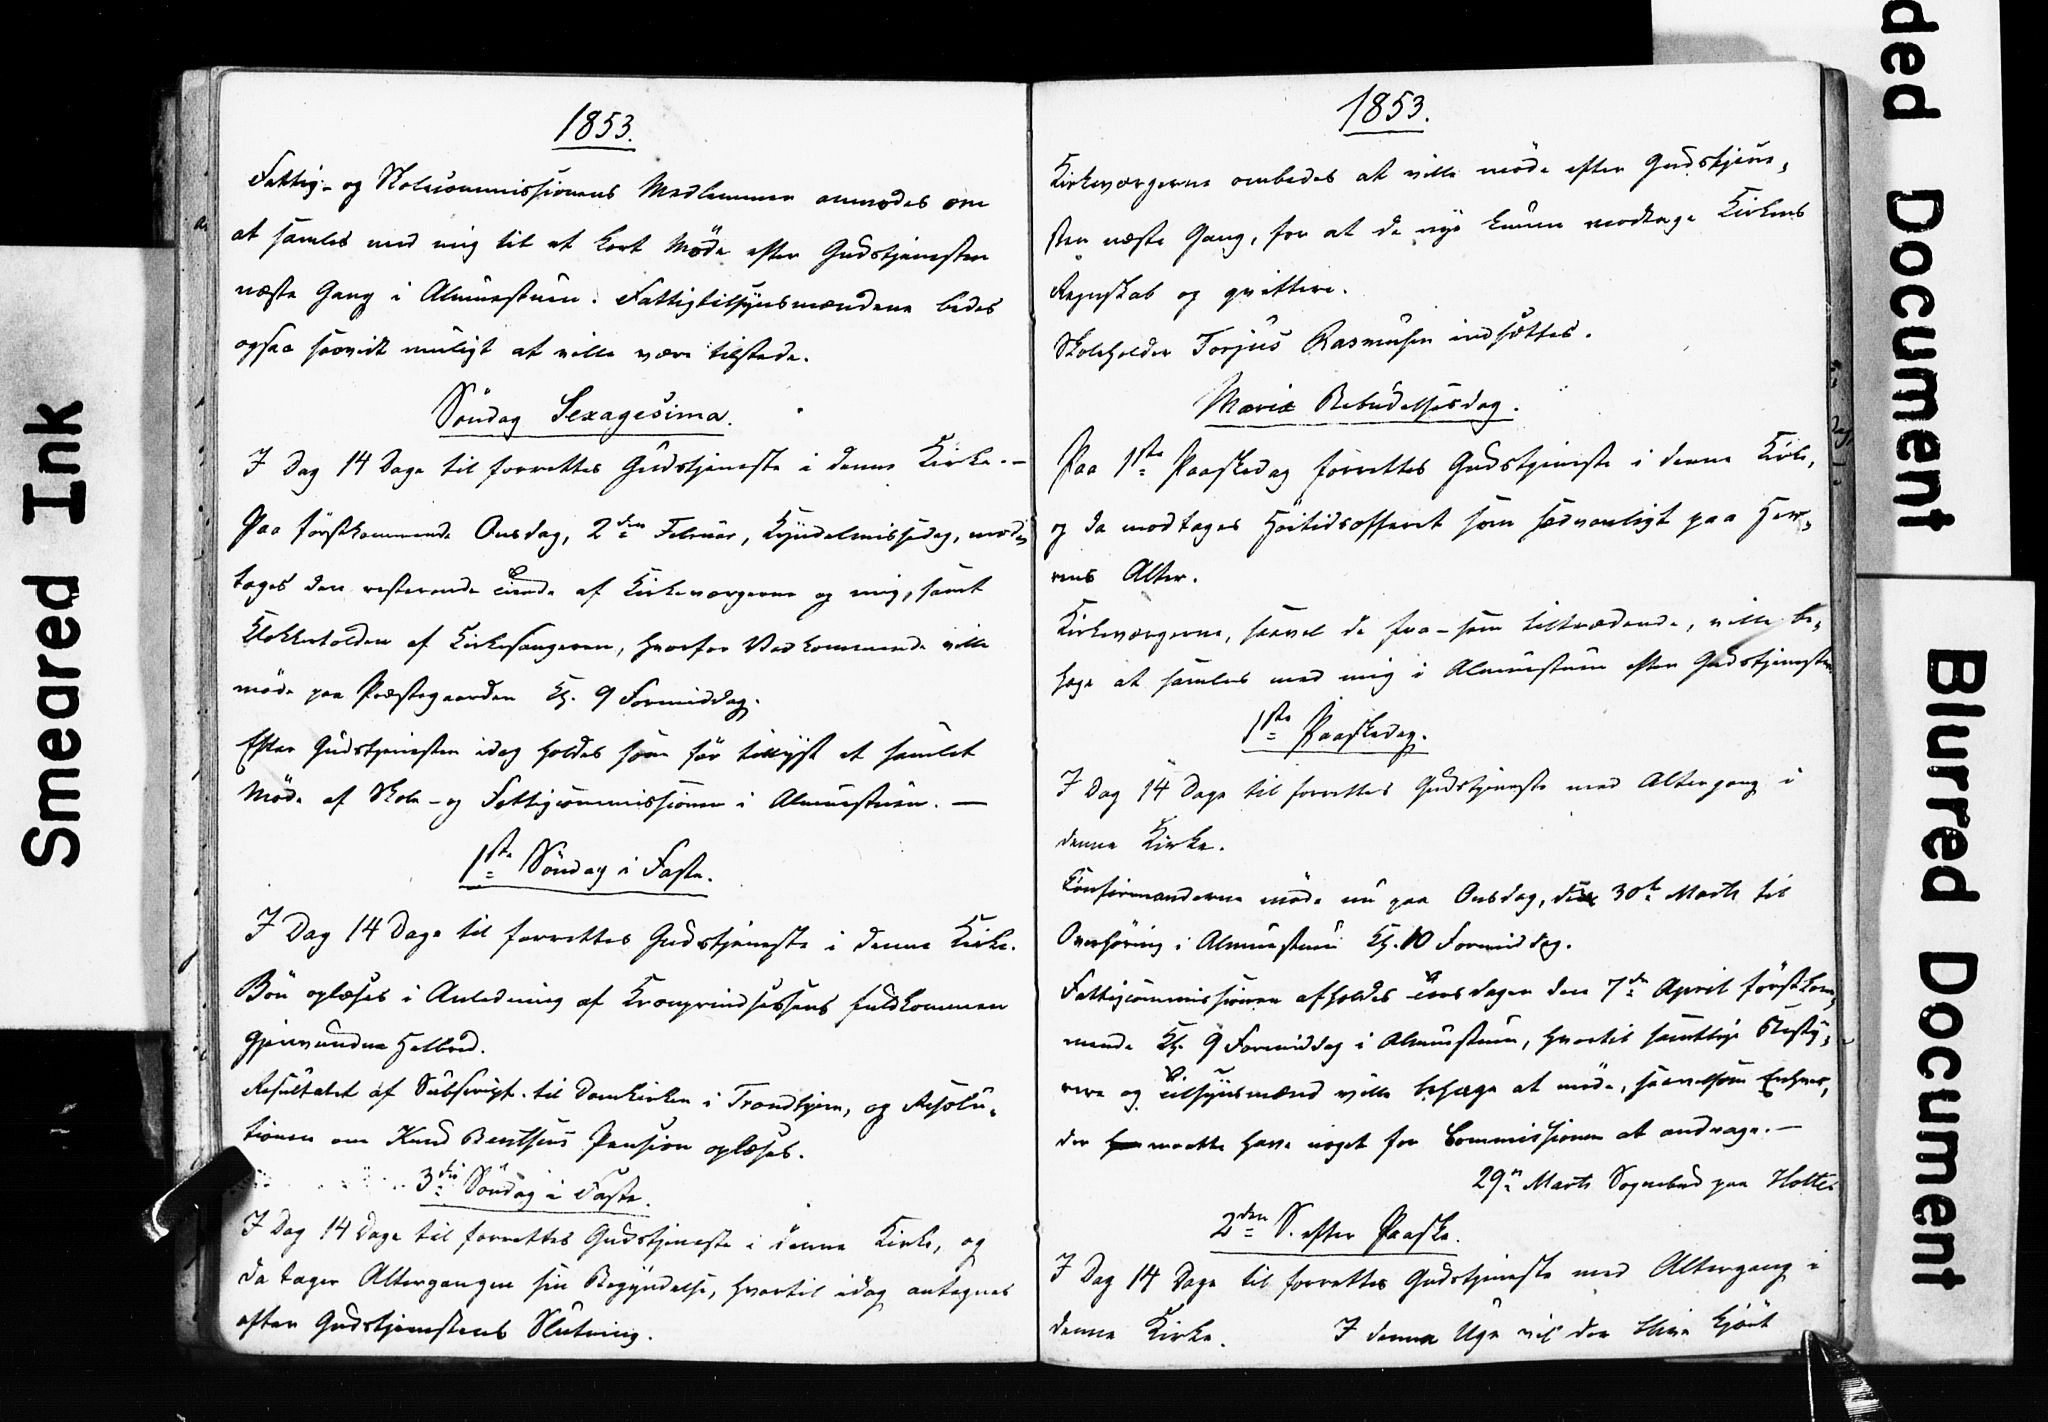 1853.
Fattig- og Skolecommissionens Medlemmer anmodes om
at samles med mig til et kort Möde efter Gudstjenesten
næste Gang i Almuestuen. Fattigtilsynsmændene bedes
ogsaa saavidt muligt at ville være tilstede.
Söndag Sexagesima.
I Dag 14 Dage til forrettes Gudstjeneste i denne Kirke. —
Paa förstkommende Onsdag, 2den Februar, Kyndelmissedag, mod-
tages den resterende Tiende af Kirkeværgerne og mig, samt
Klokkertolden af Kirkesangeren, hvorfor Vedkommende ville
möde paa Præstegaarden Kl. 9 Formiddag.
Efter Gudstjenesten idag holdes som för tillyst et samlet
Möde af Skole- og Fattigcommissionen i Almuestuen. —
1ste Söndag i Faste.
I Dag 14 Dage til forrettes Gudstjeneste i denne Kirke.
Bön oplæses i Anledning af Kronprindsessens fuldkommen
gjenvundne Helbred.
Resultatet af Subscript. til Domkirken i Trondhjem, og Resolu-
tionen om Knud Bentsens Pension oplæses.
3die Söndag i Faste.
I Dag 14 Dage til forrettes Gudstjeneste i denne Kirke, og
da tager Altergangen sin Begyndelse, hvortil idag antegnes
efter Gudstjenestens Slutning.
1853.
Kirkeværgerne ombedes at ville möde efter Gudstjene-
sten næste Gang, for at de nye kunne modtage Kirkens
Regnskab og qvittere.
Skoleholder Torjus Rasmusen indsættes.
Mariæ Bebudelsesdag.
Paa 1ste Paaskedag forrettes Gudstjeneste i denne Kirke,
og da modtages Höitidsofferet som sædvanligt paa Her-
rens Alter.
Kirkeværgerne, saavel de fra- som tiltrædende, ville be-
hage at samles med mig i Almuestuen efter Gudstjenesten.
1ste Paaskedag.
I Dag 14 Dage til forrettes Gudstjeneste med Altergang i
denne Kirke.
Confirmanderne möde nu paa Onsdag, den 30te Marts til
Overhöring i Almuestuen Kl. 10 Formiddag.
Fattigcommissionen afholdes Torsdagen den 7de April förstkom-
mende Kl. 9 Formiddag i Almuestuen, hvortil samtlige Besty-
rere og Tilsynsmænd ville behage at möde, saavelsom Enhver,
der maatte have noget for Commissionen at andrage. —
29n Marts Sognebud paa
2den S. efter Paaske.
I Dag 14 Dage til forrettes Gudstjeneste med Altergang i
denne Kirke. I denne Uge vil der blive kjört
Smeared Ink
ded Document
Blurred Document